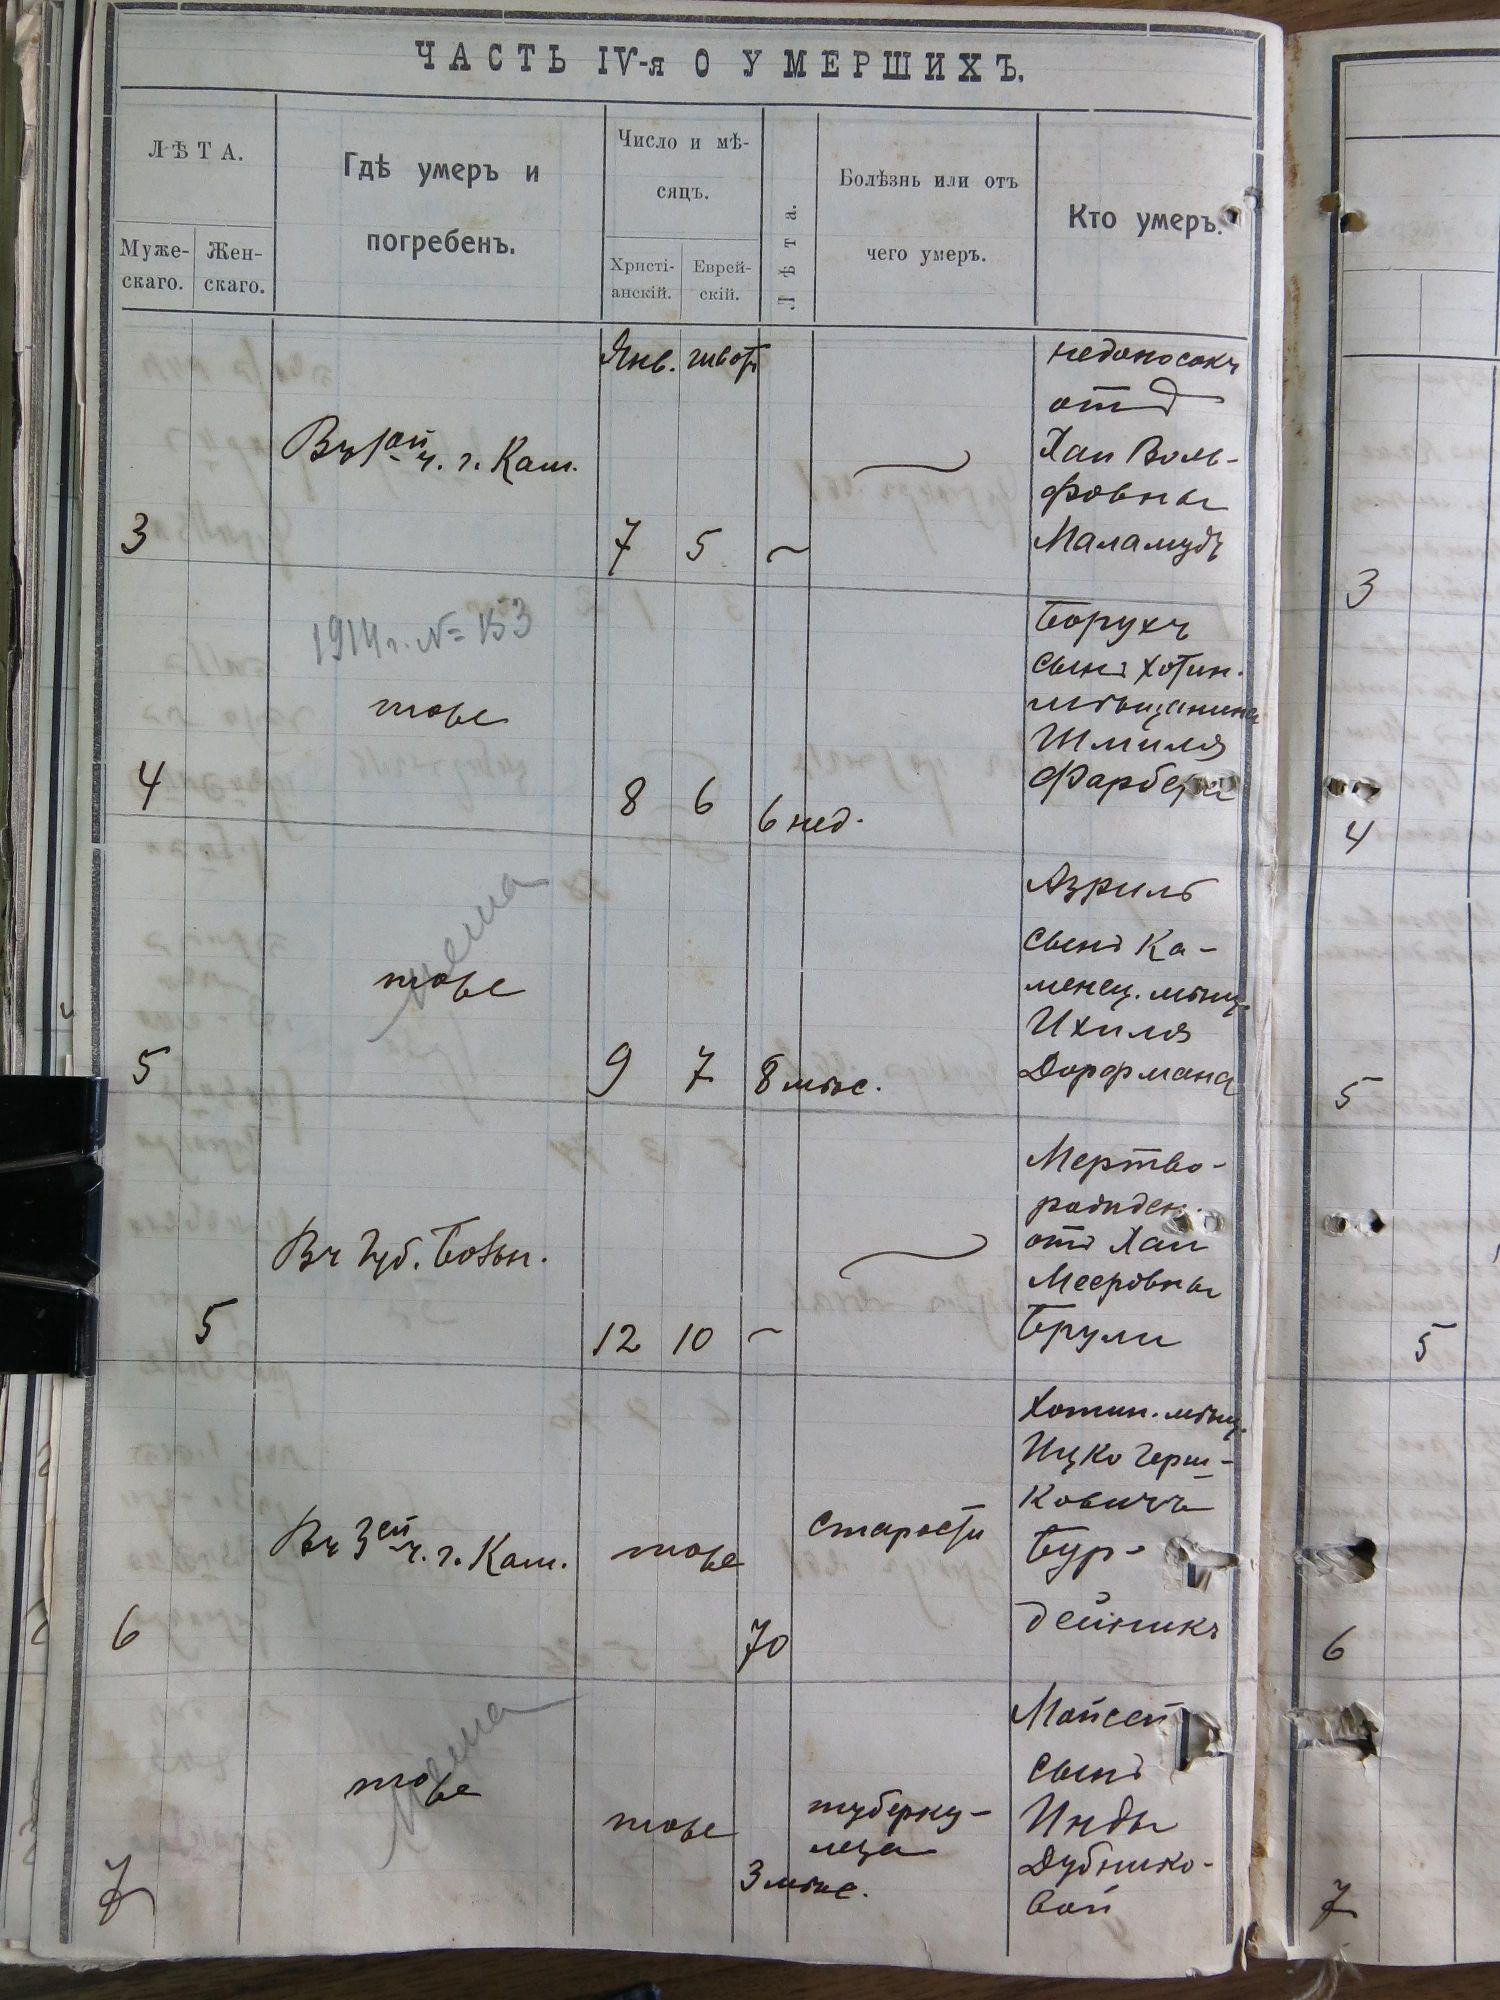 ЧАСТЬ IV-я О УМЕРШИХЪ.
ЛѢТА.
Муже-
скаго.
Жен-
скаго.
Гдѣ умеръ и
погребенъ.
Число и мѣ-
сяцъ.
Христі-
анскій.
Еврей-
скій.
Лѣта.
Болѣзнь или отъ
чего умеръ.
Кто умеръ.
3
Въ 1ой ч. г. Кам.
Янв.
7
5
недоносокъ
отъ
Хаи Воль-
фовны
Маламудъ
4
1914 г. № 153
тоже
8
6
6 нед.
Борухъ
сынъ Хотин.
мѣщанина
Шмиля
Фарбера
5
тоже
9
7
8 мѣс.
Азриль
сынъ Ка-
менец. мѣщ.
Ихиля
Дорфмана
5
Въ Губ. Больн.
12
10
Мертво-
рожден.
отъ Хаи
Мееровны
Брули
6
Въ 3ей ч. г. Кам.
тоже
70
старости
Хотин. мѣщ.
Ицко Герш-
ковичъ
Бур-
дейникъ
7
тоже
тоже
3 мѣс.
туберку-
леза
Мойсей
сынъ
Инды
Дубнико-
вой
3
4
5
5
6
7